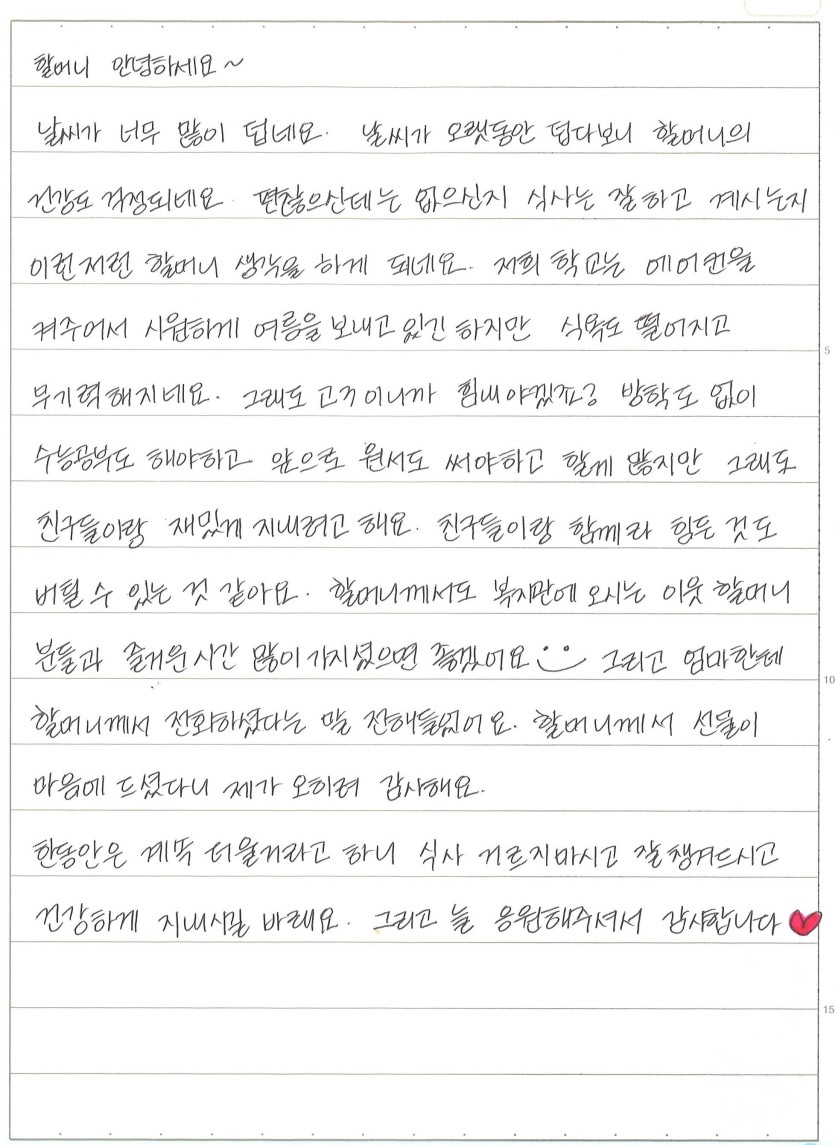 할머니 안녕하세요~
날씨가 너무 많이 덥네요. 날씨가 오랫동안 덥다보니 할머니의
건강도 걱정되네요. 편찮으신데는 없으신지 식사는 잘 하고 계시는지
이런저런 할머니 생각을 하게 되네요. 저희 학교는 에어컨을
켜주어서 시원하게 여름을 보내고 있긴 하지만 식욕도 떨어지고
무기력해지네요. 그래도 고3이니까 힘내야겠죠? 방학도 없이
수능공부도 해야하고 앞으로 원서도 써야하고 할게 많지만 그래도
친구들이랑 재밌게 지내려고 해요. 친구들이랑 함께라 힘든 것도
버틸 수 있는 것 같아요. 할머니께서도 복지관에 오시는 이웃 할머니
분들과 즐거운 시간 많이 가지셨으면 좋겠어요 그리고 엄마한테
할머니께서 전화하셨다는 말 전해들었어요. 할머니께서 선물이
마음에 드셨다니 제가 오히려 감사해요.
한동안은 계속 더울거라고 하니 식사 거르지마시고 잘 챙겨드시고
건강하게 지내시길 바래요. 그리고 늘 응원해주셔서 감사합니다
5
10
15